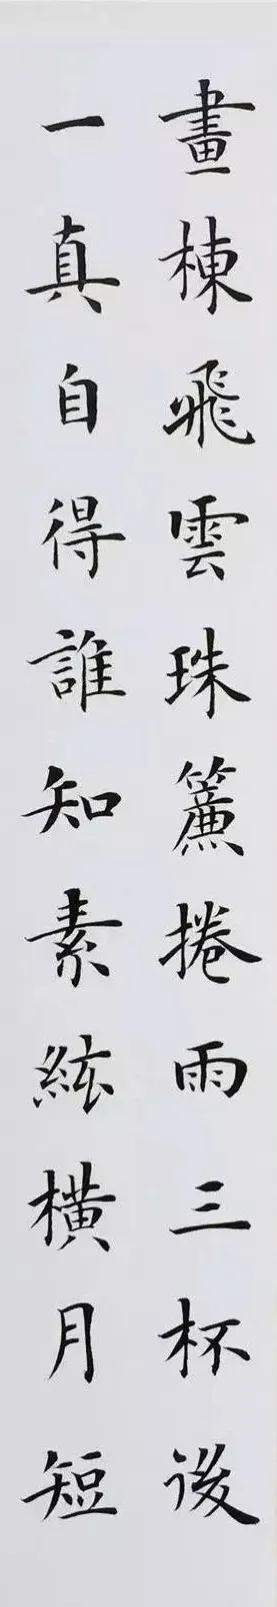 畫棟飛雲珠簾捲雨三杯後
一真自得誰知素絃橫月短